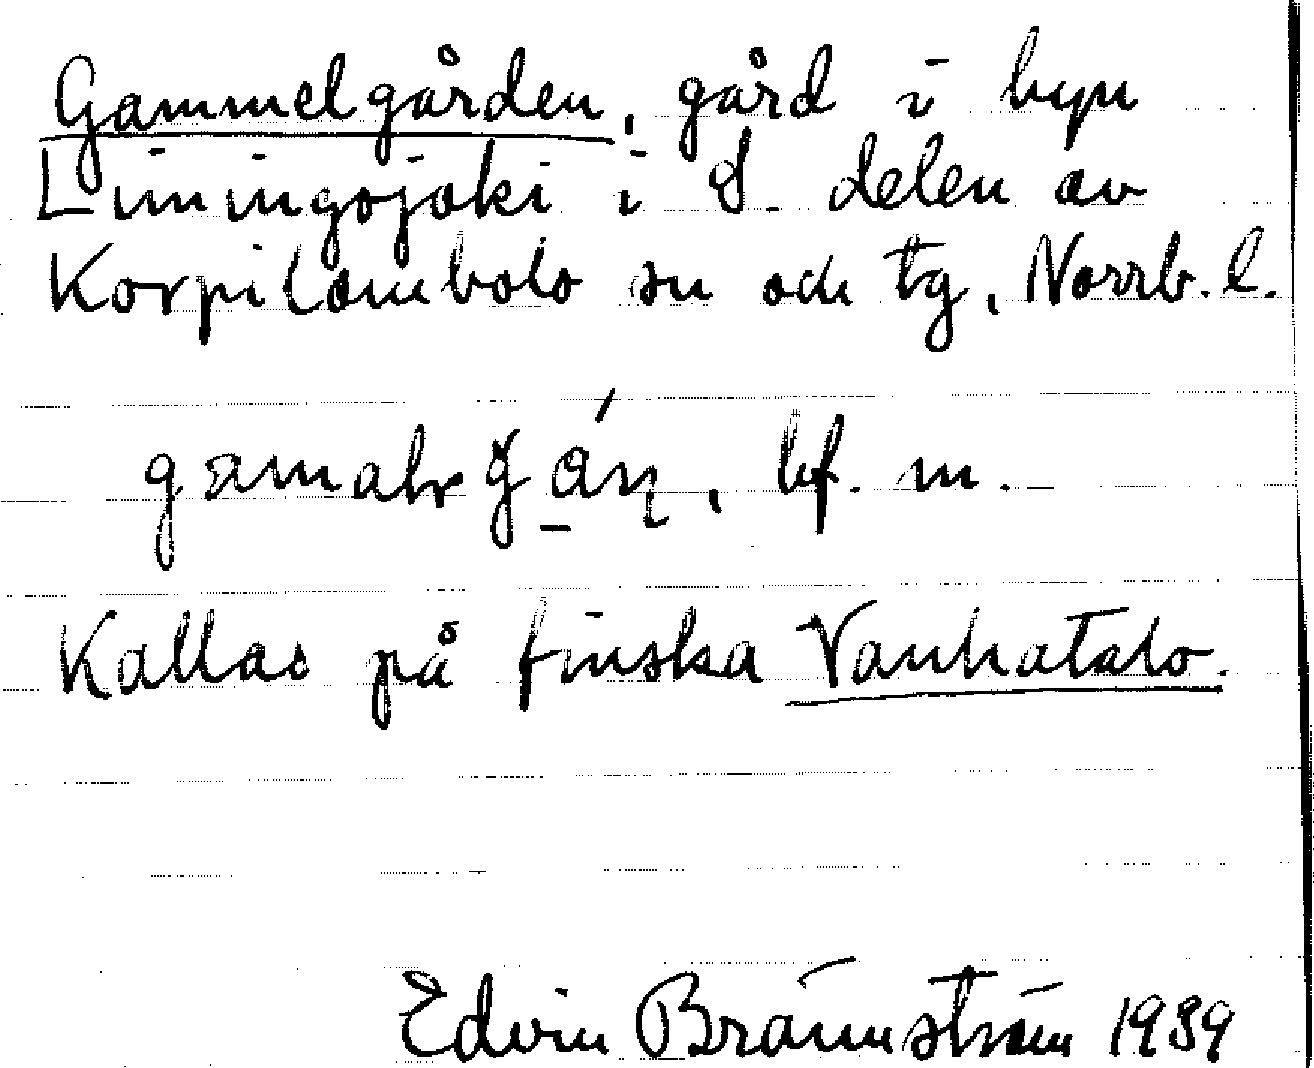 Gammelgården, gård i byn
Limingojoki i S. delen av
Korpilombolo sn och tg, Norrb. l.
bf. m.
Kallas på finska Vanhatalo.
Edvin Brännström 1939